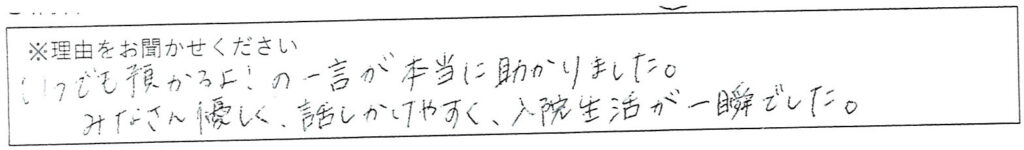 ※理由をお聞かせください
いつでも預かるよ!の一言が本当に助かりました。
みなさん優しく、話しかけやすく、入院生活が一瞬でした。